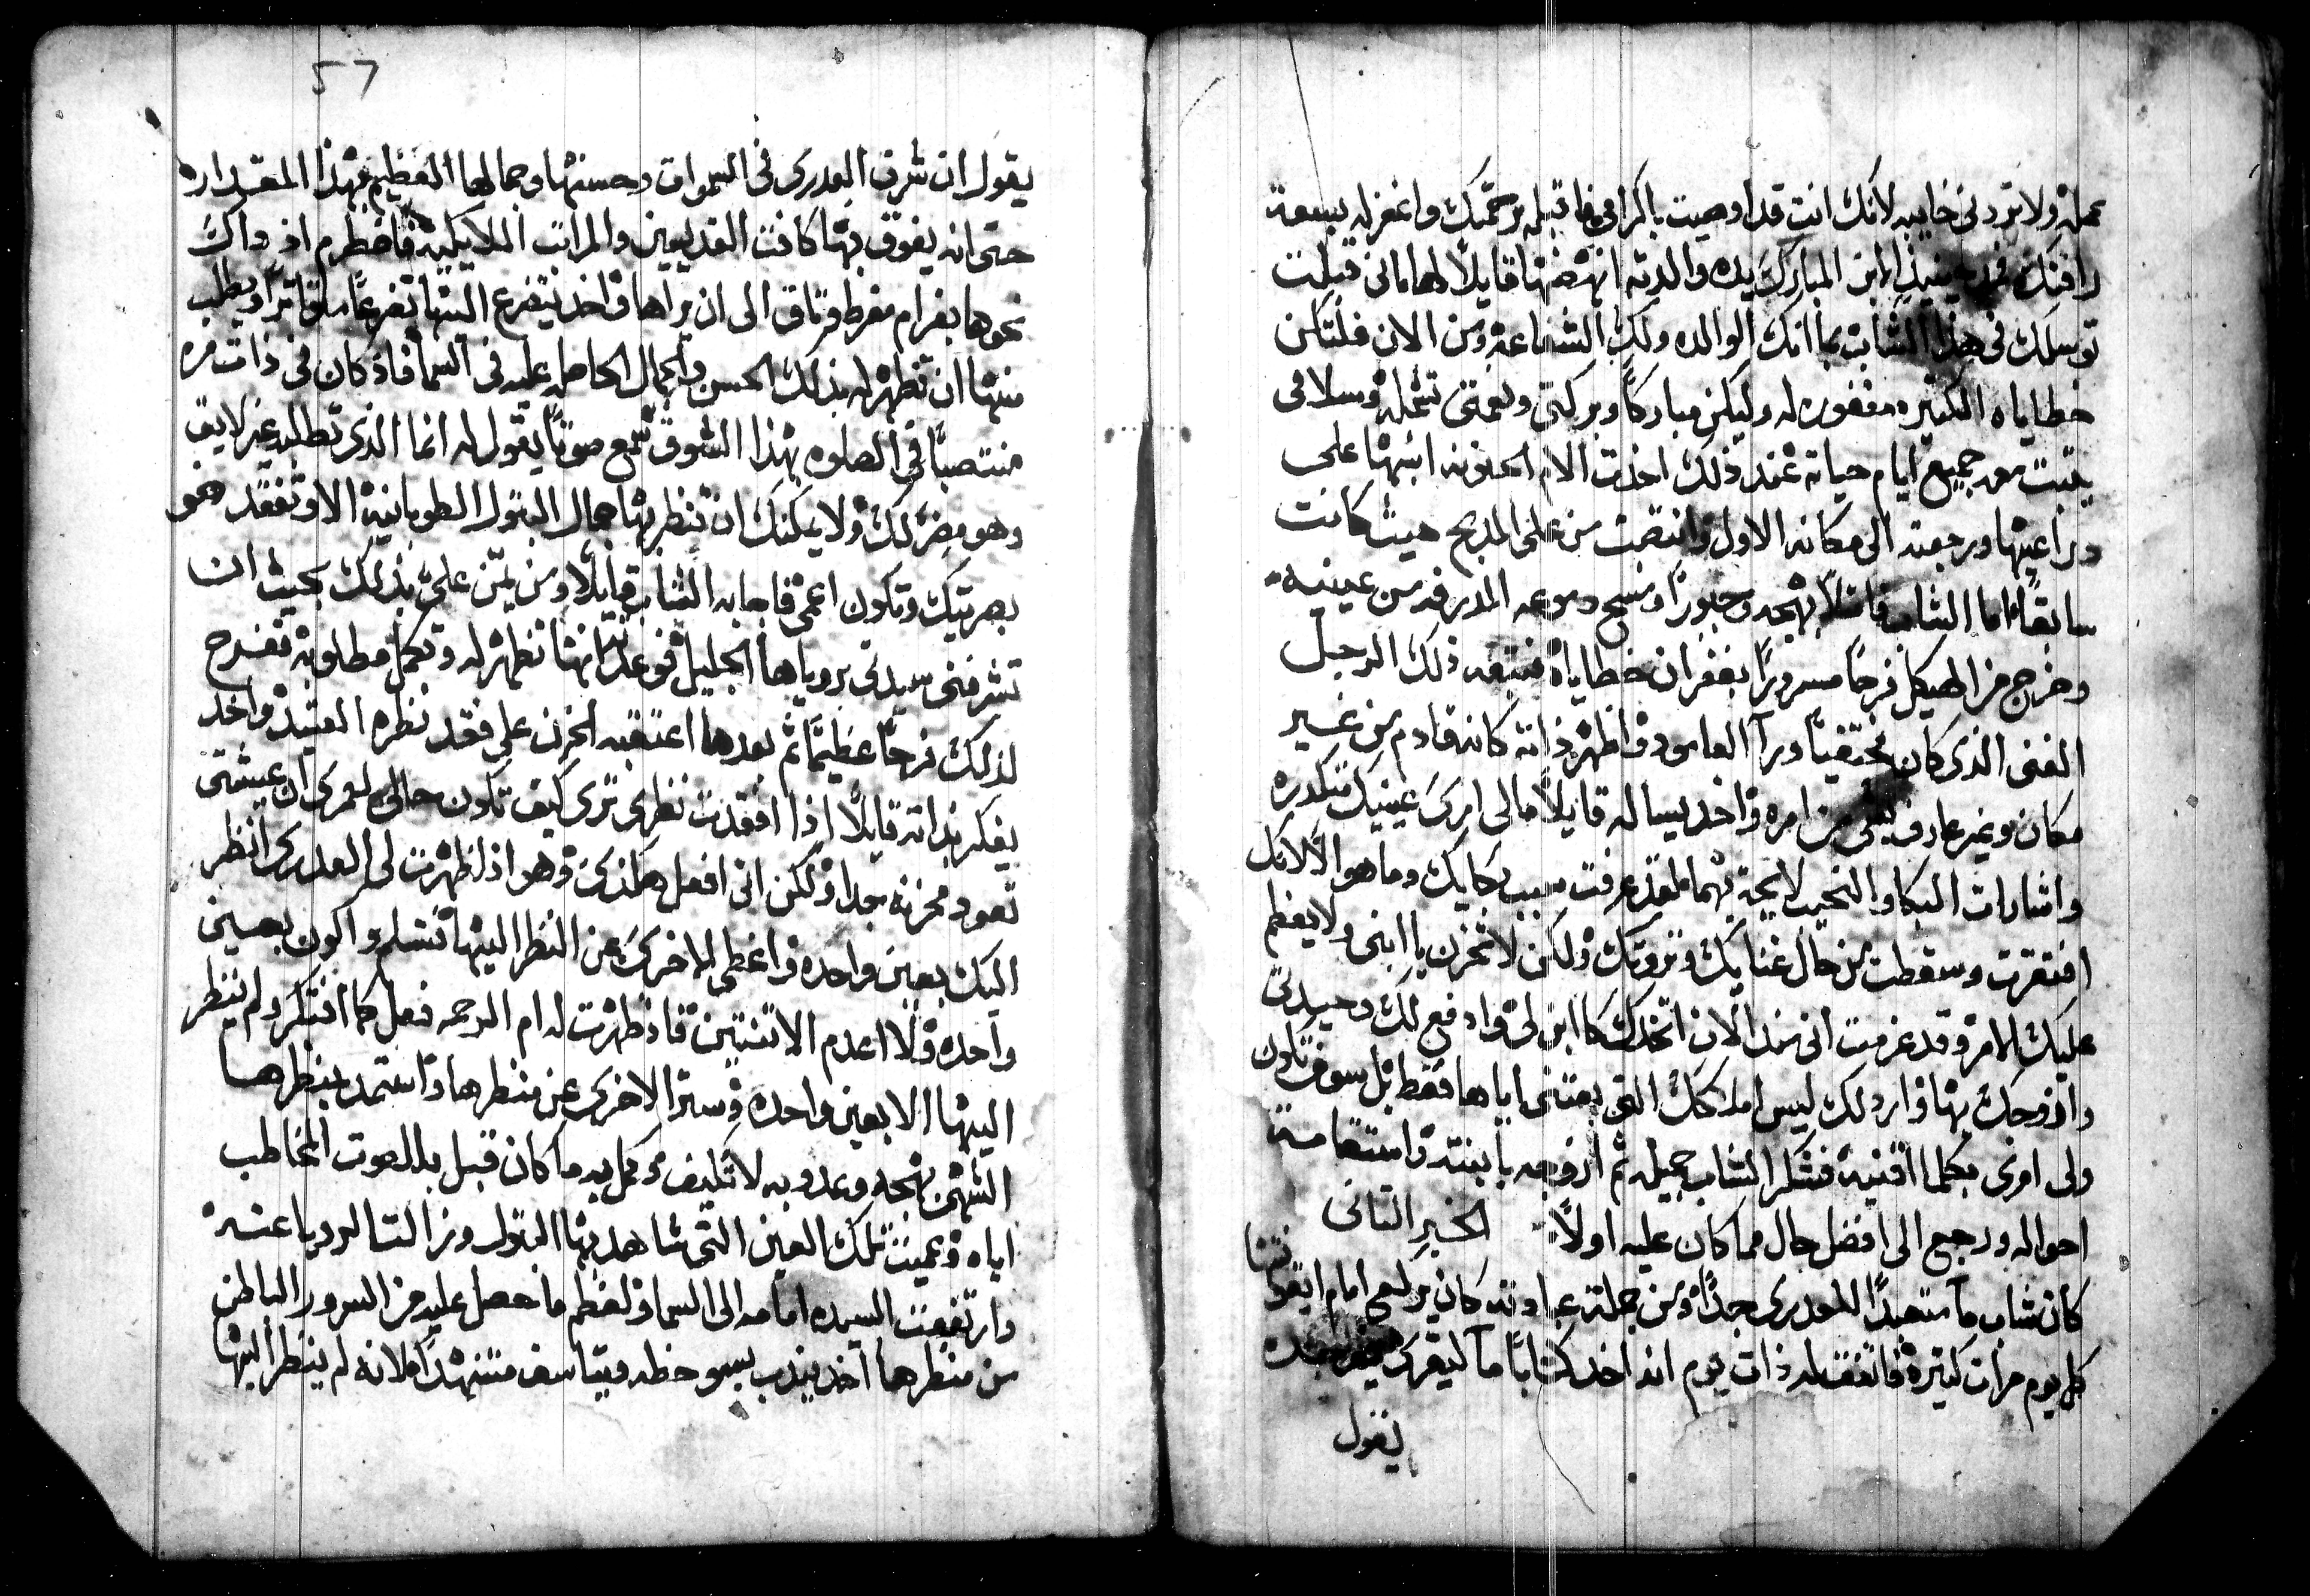 عمله ولا تردني خايبه لانك انت قد اوصيت باكرامي فاقبله برحمتك واغفر له بسعة
رافتك فمد حينيذ الابن المبارك يده والدته انهضها قايلاً لها يا امي قبلت
توسلك في هذا الشاب بما انك الوالده ولك الشفاعه ومن الان فلتكن
خطاياه الكثيره مغفوره له وليكن مباركاً وبركتي ونعمتي تشمله وسلامي
يثبت معه جميع ايام حياته عند ذلك اخذت الام الحنونه ابنها على
دراعيها ورجعت الى مكانه الاول وانتصبت من على المدبح حيث كانت
سابقاً اما الشاب فامتلا بهجه وحبوراً ومسح دموعه المدرفه من عينيه
وخرج من الهيكل فرحاً مسروراً بغفران خطاياه فتبعه ذلك الرجل
الغني الذي كان مختفياً ورآ العامود واظهر ذاته كانه قادم من غير
مكان وغير عارف بشي من امره واخد يساله قايلاً ما لي ارى عينيك متكدره
واشارات البكا والنحيب لايحة بهما لقد عرفت سبب بكايك وما هو الا لانك
افتقرت وسقطت من حال غنايك وثروتك ولكن لا تحزن يا ابني ولا يعظم
عليك الامر وقد عزمت اني منذ الان اتخدك كابن لي وادفع لك وحيدتي
وازوجك بها وارد لك ليس املاكك التي بعتني اياها فقط بل سوف تكون
ولي اوري بكلما اقتنيه فشكر الشاب جميله ثم ازوجه بابنته واستقامت
احواله ورجع الى افضل حال مما كان عليه اولاً الخبر التاني
كان شاب ما متعبداً للعدرى جداً ومن جملة عباداته كان يركع امام ايقونتها
كل يوم مرات كثيرة فاتفق له ذات يوم انه اخد كتاباً ما ليقرى
يقول
57
يقول ان شرف العدرى في السموات وحسنها وجمالها العظيم بهذا المقداره
حتى انه يفوق بها كافت القديسين والمراتب الملايكيه فاضطرم اذ داك
نحوها بغرام مفرط وتاق الى ان يراها واخد يتضرع اليها تضرعاً متواتراً ويطلب
منها ان تظهر له بذلك الحسن والجمال الحاصله عليه في السما فاذ كان في ذات مره
منتصباً في الصلوه بهذا الشوق سمع صوتاً يقول له انما الذي تطلبه غير لايق
وهو مضر لك ولا يمكنك ان تنظر بها جمال البتول الطوبانيه الا وتفقد ضو
بصرتيك وتكون اعمى فاجابه الشاب قايلاً ومن يمن علي بذلك بحيث ان
تشرفني سيدتي بروياها الجليل فوعد انها تظهر له وتكمل مطلوبه ففرح
لذلك فرحاً عظيماً ثم بعدها اعتقبه الحزن على فقد نظره العتيد واخد
يفكر بذاته قايلاً اذا افقدت نظري ترى كيف تكون حالي لعمري ان عيشتي
تعود محزنه جدا ولكن اني افعل هكذي وهو اذا ظهرت لي العدرى انظر
اليك بعين واحده واغطي الاخرى عن النظر اليها تسلم واكون بعين
واحده ولا اعدم الاتنتين فاذ ظهرت له ام الرحمه فعل كما افتكر ولم ينظر
اليها الا بعين واحده وستر الاخرى عن منظرها واستمد بنظرها
الشهي بهجه وعدوبه لا تكيف وكمل به ما كان قبل بدا الصوت المخاطب
اياه وعميت تلك العين التي شاهد بها البتول وزالت الرويا عنه
وارتفعت السيده امامه الى السما ولعظم ما حصل عليه من السرور الباطن
من منظرها اخد يندب بسو حظه ويتاسف متنهداً لانه لم ينظر اليها